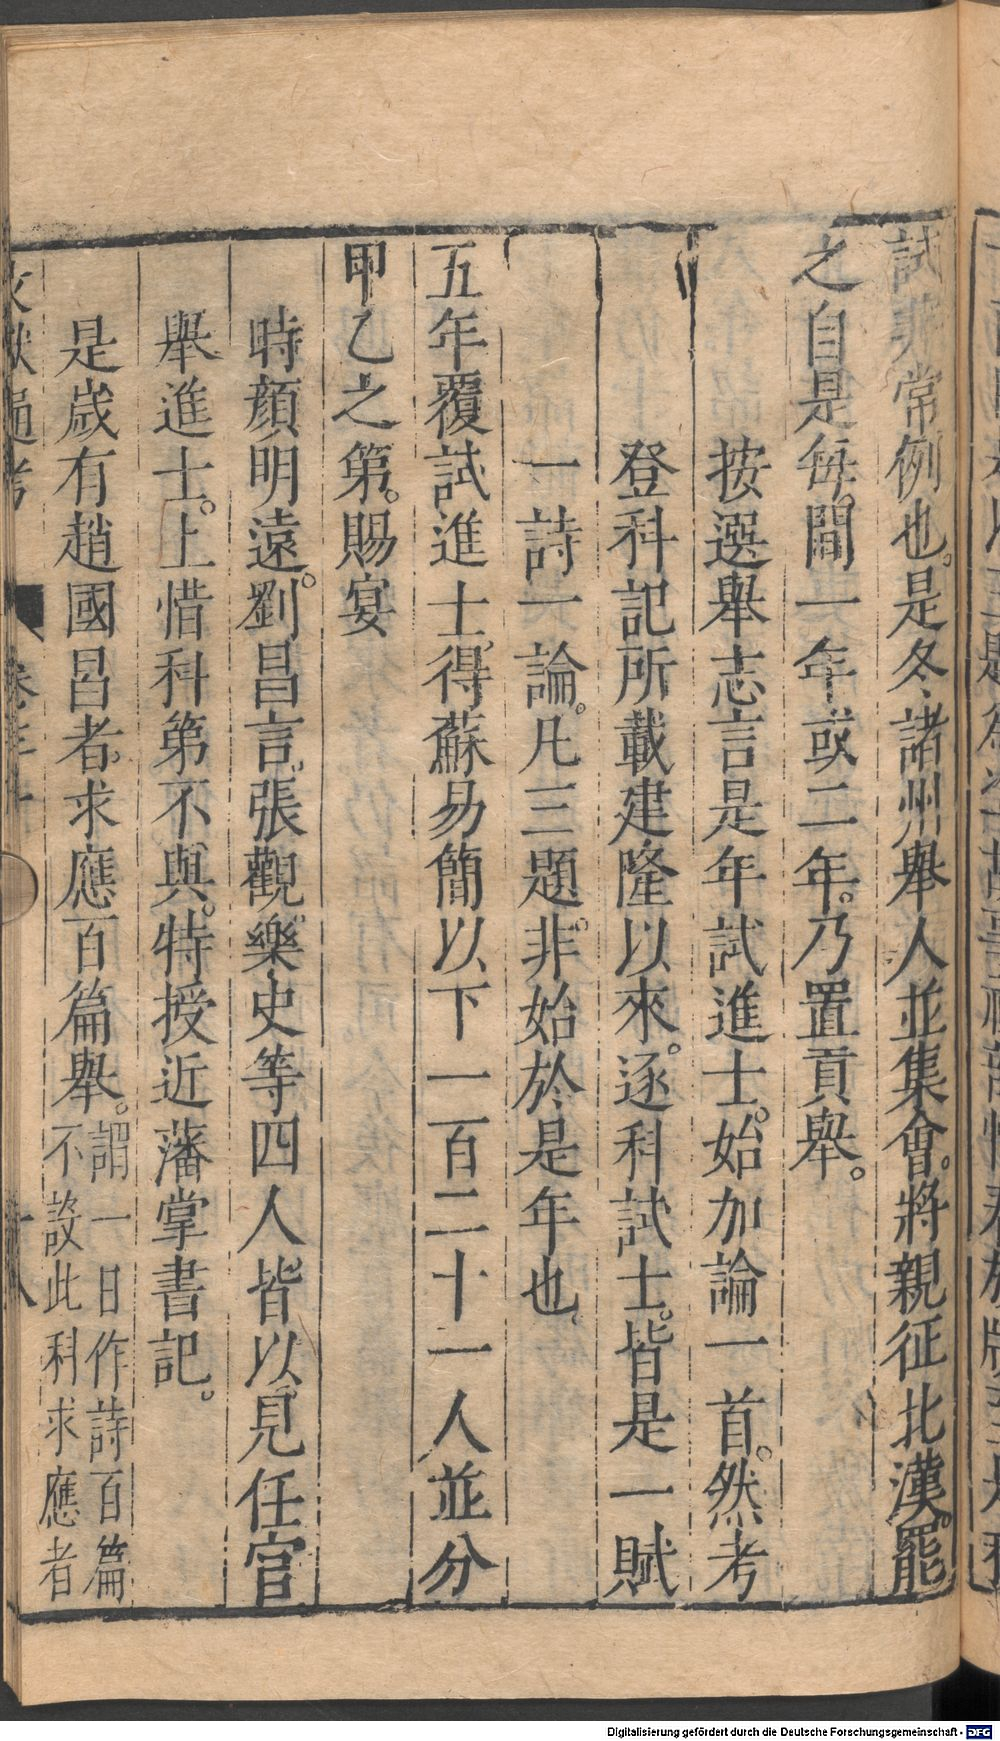 試非常例也。是冬諸州舉人並集會。將親征北漢。罷
之自是每。間一年或二年。乃置貢舉。
按選舉志言是年試進士。始加論一首。然考
登科記所載建隆以來。逐科試士。皆是一賦
一詩一論。凡三題。非始於是年也。
五年覆試進士。得蘇易簡以下一百二十一人並分
甲乙之第。賜宴
時顏明遠。劉昌言。張觀。樂史等四人皆以見任官
舉進士。上惜科第不與。特授近藩掌書記。
是歲有趙國昌者。求應百篇舉。謂一日作詩百篇
不設此科求應者
Digitalisierung gefördert durch die Deutsche Forschungsgemeinschaft - DFG